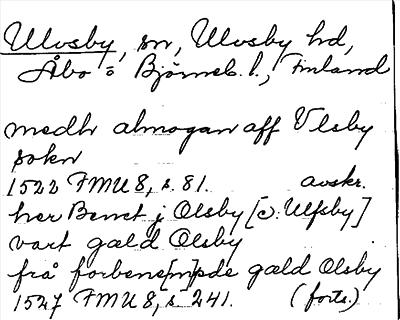 Ulvsby, sn, Ulvsby hd,
Åbo o Björneb. l., Finland
medh almogan aff Vlsby
sokn
1522 FMU 8, s. 81. avskr.
her Benct j Olsby [ɔ: Ulfsby]
vart gæld Olsby
frå forbene[m]pde gæld Olsby
1527 FMU 8, s 241. (forts.)